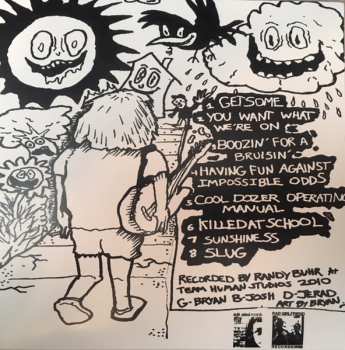 1 GET SOME
2 YOU WANT WHAT
WE'RE ON
3 BOOZIN' FOR A
BRUISIN'
4 HAVING FUN AGAINST
IMPOSSIBLE ODDS
5 COOL DOZER OPERATING
MANUAL
6 KILLED AT SCHOOL
7 SUNSHINESS
8 SLUG
RECORDED BY RANDY BUHR AT
TEAM HUMAN STUDIOS 2010
G-BRYAN B-JOSH D-JERAD
ART BY BRYAN